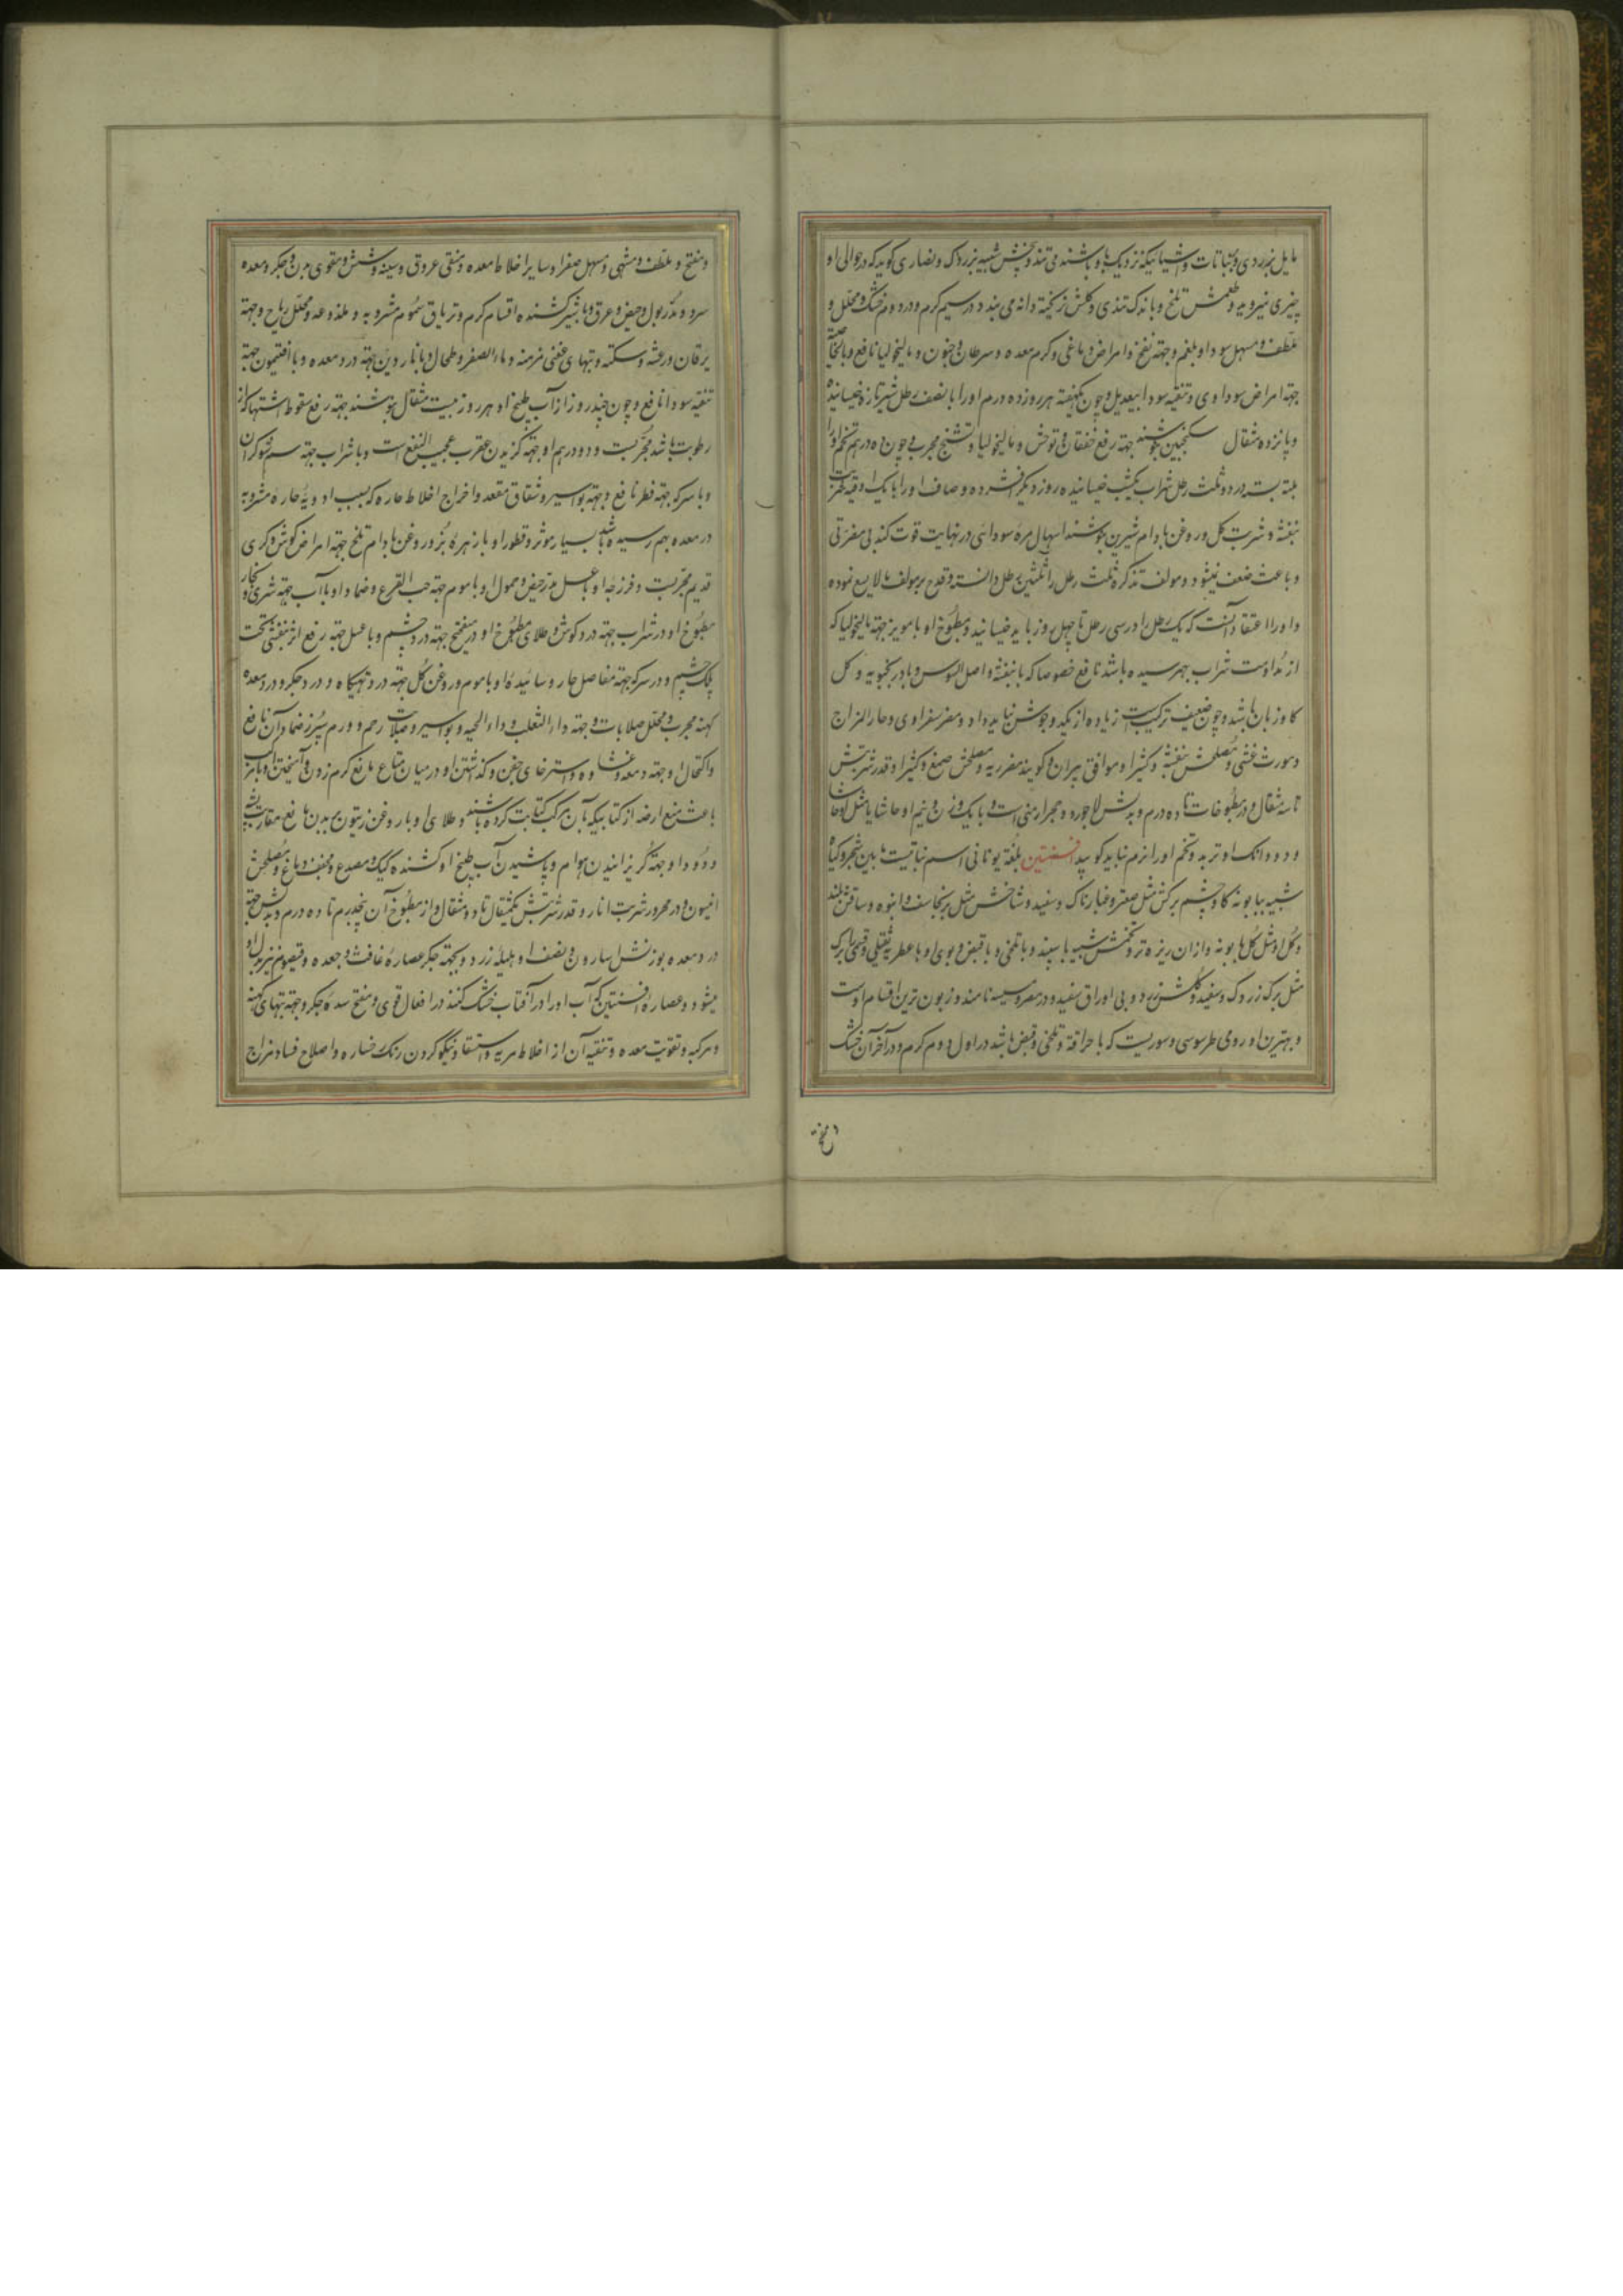 مایل بزردی و نباتات و اشیائیکه نزدیک باو باشند می تند و بیخش شبیه بزردک و نصاری گویند که در حوالی او
چیزی نمیروید و طعمش تلخ و باندک تندی و گلش نریخته دانه می بندد در سیم گرم و در دوم خشک و محلل و
ملطف و مسهل سودا و بلغم و جهته نفخ و امراض دماغی و کرم معده و سرطان و جنون و مالیخولیا نافع و بالخاصیة
جهته امراض سوداوی و تنقیه سودا بیعدیل و چون یکهفته هر روز ده درم او را با نصف رطل شیر تازه خیسانیده
و پانزده مثقال سکنجبین بنوشند جهته رفع خفقان و توحش و مالیخولیا و تشنج مجرب و چون ده درهم تخم او را
بسته در دو ثلث رطل شراب یکشب خیسانیده روز دیگر افشرده و صاف او را با یک اوقیه شربت
بنفشه و شربت گل و روغن بادام شیرین بنوشند اسهال مره سودائی در نهایت قوت کند بی مضرتی
و باعث ضعف نمیشود و مولف تذکره ثلث رطل را ثلثین رطل دانسته و قدح بر مولف مالایسع نموده
و او را اعتقاد آنست که یک رطل او در سی رطل تا چهل روز باید خیسانید و مطبوخ او با مویز جهته مالیخولیا که
از مداومت شراب بهمرسیده باشد نافع خصوصا که با بنفشه و اصل السوس و بادرنجبویه و گل
گاوزبان باشد و چون ضعیف ترکیبست زیاده از یکدو جوش نباید داد و مضر صفراوی و حار المزاج
و مورث غشی و مصلحش بنفشه و کتیرا و موافق پیران و گویند مضر ریه و مصلحش صمغ و کتیرا و قدر شربتش
تا سه مثقال و در مطبوخات تا ده درم و بدلش لاجورد و حجر ارمنی است و با یک وزن و نیم او حاشا یا مثل او حاشا
و دو دانک او تربد و تخم او را نرم نباید کوبید افسنتین بلغة یونانی اسم نباتیست مابین شجر و گیاه
شبیه ببابونه گاوچشم برگش مثل صعتر و غبارناک و سفید و شاخش مثل برنجاسف و انبوه و ساقش بلند
و گل او مثل گل بابونه و از ان ریزه تر و تخمش شبیه باسپند و با تلخی و با قبض و بوی او با عطریه ثقیلی و قسمی را برگ
مثل برگ زردک و سفید و گلش زرد و بی اوراق سفید و در مصر دمسیسه نامند و زبون ترین اقسام اوست
و بهترین او رومی طرسوسی و سوریست که با حرافة و تلخی و قبض باشد در اول دوم گرم و در آخر آن خشک
و مفتح و ملطف و مشهی و مسهل صفرا و سایر اخلاط معده و منقی عروق و سینه و شش و مقوی بدن و جگر و معده
سرد و مدر بول و حیض و عرق و با شیر کشنده اقسام کرم و تریاق سموم مشروبه و ملذوعه و محلل ریاح و جهته
یرقان و رعشه و سکته و تبهای عفنی مزمنه و ماء الصفر و طحال و با ناردین جهته درد معده و با افتیمون جهته
تنقیه سودا نافع و چون چند روز از آب طبیخ او هر روز بیست مثقال بنوشند جهته رفع سقوط اشتها که از
رطوبت باشد مجربست و دو درهم او جهته گزیدن عقرب عجیب النفع است و با شراب جهته سم شوکران
و با سرکه جهته فطر نافع و جهته بواسیر و شقاق مقعد و اخراج اخلاط حاره که بسبب ادویه حاره مشروبه
در معده بهم رسیده باشد بسیار موثر و قطور او با زهره بز و روغن بادام تلخ جهته امراض گوش و کری
قدیم مجربست و فرزجه او با عسل مدر حیض و حمول او با موم جهته حب القرع و ضماد او با آب جهته شری و بخار
مطبوخ او در شراب جهته درد گوش و طلای مطبوخ او در میفختج جهته درد چشم و با عسل جهته رفع اثر بنفشی تحت
پلک چشم و در سرکه جهته مفاصل حار و سائیده او با موم و روغن گل جهته درد تهیگاه و درد جگر و درد معده
کهنه مجرب و محلل صلابات و جهته داء الثعلب و داء الحیه و بواسیر و صلابت رحم و ورم سپرز ضماد آن نافع
و اکتحال او جهته دمعه و غشاوه و استرخای جفن و گذاشتن او در میان متاع مانع کرم زدن و آمیختن او با مرکب
باعث منع ارضه از کتابیکه بآن مرکب کتابت کرده باشند و طلای او با روغن زیتون بر بدن مانع مقاربت پشه
و دود او جهته گریزانیدن هوام و پاشیدن آب طبیخ او کشنده کیک و مصدع و مجفف دماغ و مصلحش
انیسون و در محرور شربت انار و قدر شربتش یکمثقال تا دو مثقال و از مطبوخ آن پنجدرم تا ده درم و بدلش جهة
درد معده بوزنش اسارون و نصف او هلیله زرد و بجهته جگر عصاره غافث و جعده و قیصوم نیز بدل او
میشود و عصاره افسنتین که آب او را در آفتاب خشک کنند در افعال قوی و مفتح سده جگر و جهة تبهای کهنه
و مرکبه و تقویت معده و تنقیه آن از اخلاط مریه و استسقا و نیکو کردن رنگ رخساره و اصلاح فساد مزاج